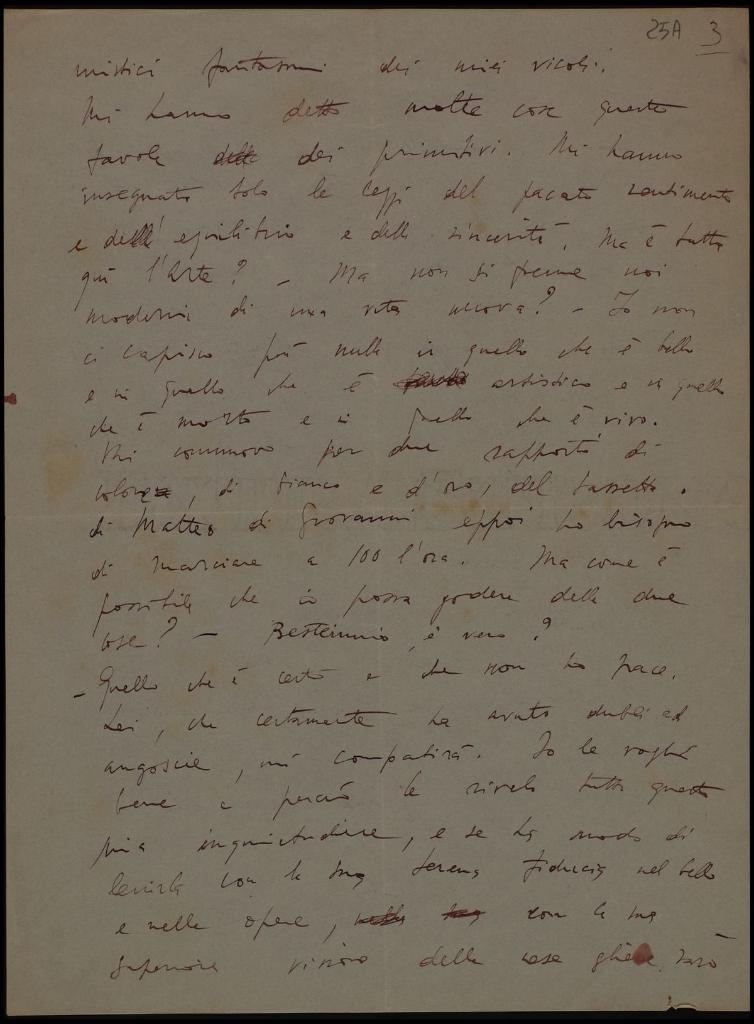 25A 3
mistici fantasmi dei miei vicoli.
Mi hanno detto molte cose queste
tavole delle dei primitivi. Mi hanno
insegnato solo le leggi del pacato sentimento
e dell' equilibrio e della sincerità. Ma è tutta
qui l'Arte? – Ma non si preme noi
moderni di una vita nuova? – Io non
ci capisco più nulla in quello che è bello
e in quello che è artistico e in quello
che è morto e in quello che è vivo.
Mi commuovo per due rapporti di
colore, di bianco e d'oro, del Sassetta.
di Matteo di Giovanni eppoi ho bisogno
di marciare a 100 l'ora. Ma come è
possibile che io possa godere delle due
cose? – Bestemmio, è vero?
– Quello che è certo è che non ho pace.
Lei, che certamente ha avuto dubbi ed
angoscie, mi compatirà. Io le voglio
bene e perciò le rivelo tutta questa
mia inquietudine, e se ha modo di
lenirla con la sua serena fiducia nel bello
e nelle opere, nella sua con la sua
superiore visione delle cose gliene sarò